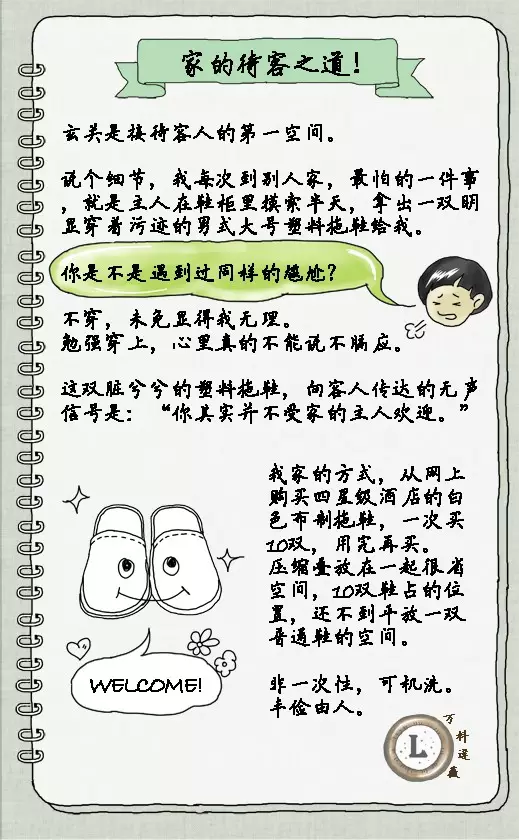 家的待客之道！
玄关是接待客人的第一空间。
说个细节，我每次到别人家，最怕的一件事
，就是主人在鞋柜里摸索半天，拿出一双明
显穿着污迹的男式大号塑料拖鞋给我。
你是不是遇到过同样的尴尬？
不穿，未免显得我无理。
勉强穿上，心里真的不能说不膈应。
这双脏兮兮的塑料拖鞋，向客人传达的无声
信号是：“你真实并不受家的主人欢迎。”
我家的方式，从网上
购买四星级酒店的白
色布制拖鞋，一次买
10双，用完再买。
压缩叠放在一起很省
空间，10双鞋占的位
置，还不到平放一双
普通鞋的空间。
非一次性，可机洗。
丰俭由人。
WELCOME!
L
万
科
遥
薇